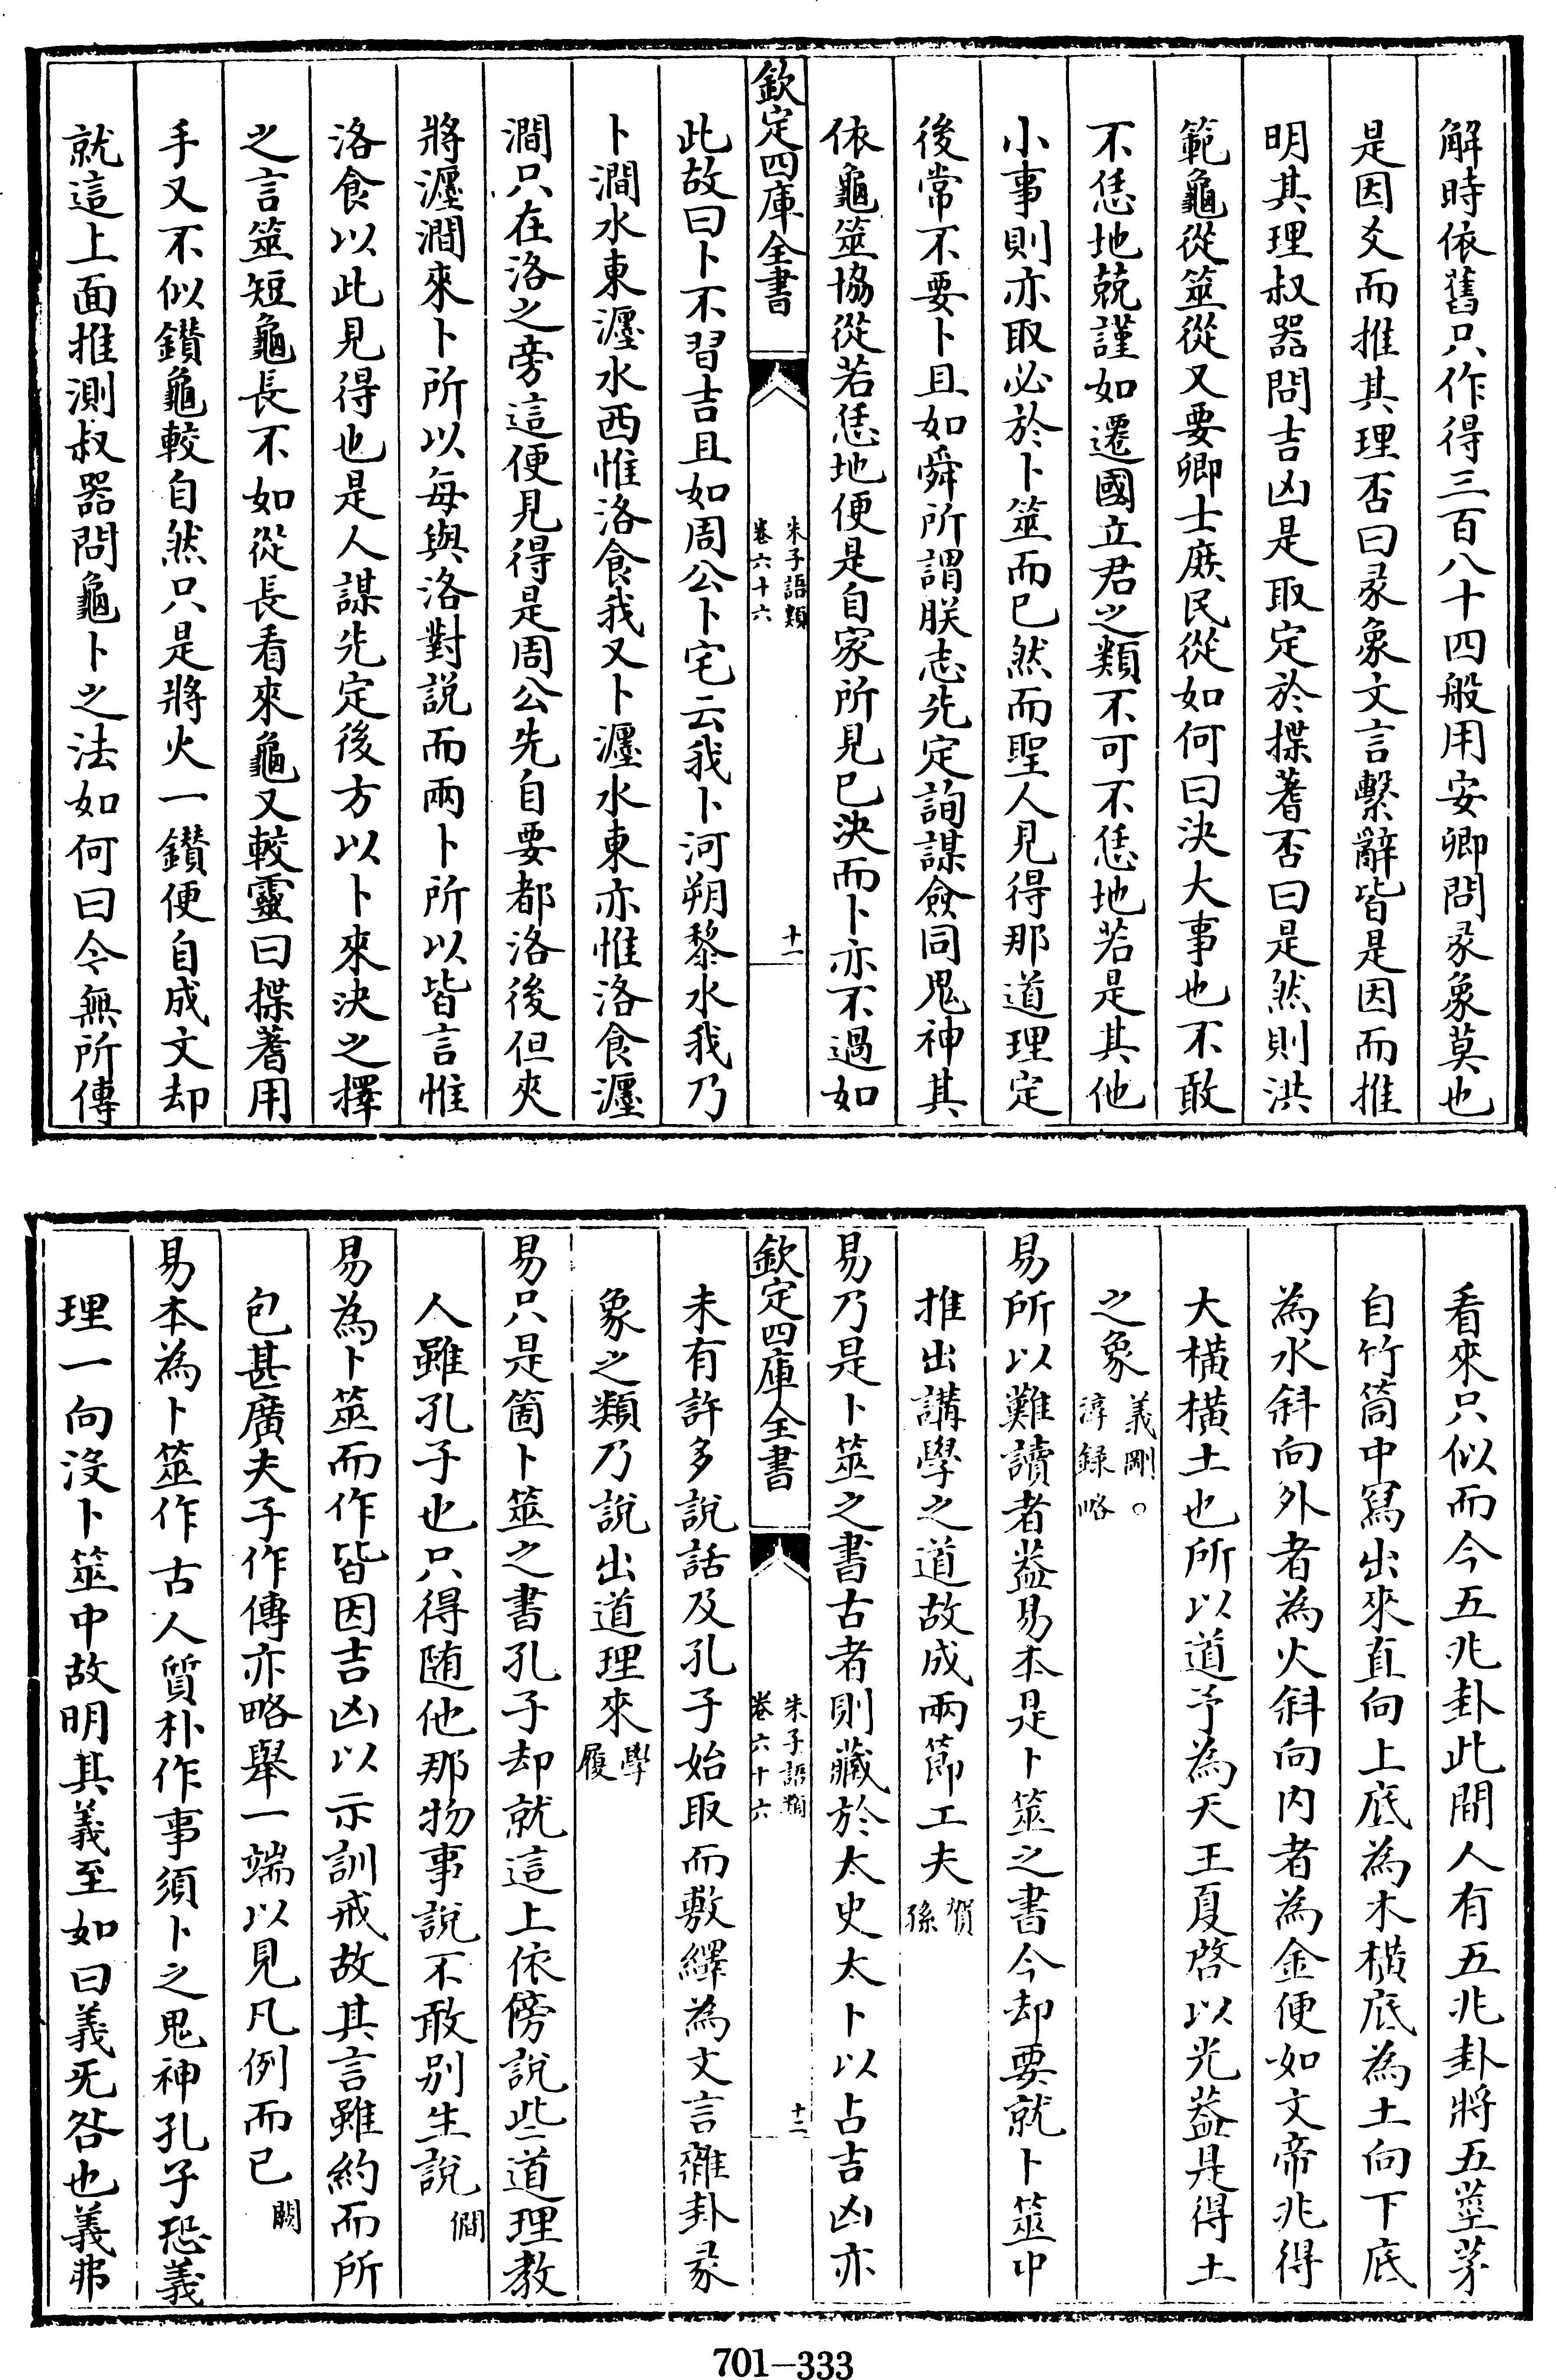 解時依舊只作得三百八十四般用安卿問彖象莫也
是因爻而推其理否曰彖象文言繫辭皆是因而推
明其理叔器問吉凶是取定於揲蓍否曰是然則洪
範龜從筮從又要卿士庶民從如何曰決大事也不敢
不恁地兢謹如遷國立君之類不可不恁地若是其他
小事則亦取必於卜筮而已然而聖人見得那道理定
後常不要卜且如舜所謂朕志先定詢謀僉同鬼神其
依龜筮協從若恁地便是自家所見已決而卜亦不過如
欽定四庫全書
朱子語類
卷六十六
十一
此故曰卜不習吉且如周公卜宅云我卜河朔黎水我乃
卜澗水東瀍水西惟洛食我又卜瀍水東亦惟洛食瀍
澗只在洛之旁這便見得是周公先自要都洛後但夾
將瀍澗來卜所以每與洛對說而兩卜所以皆言惟
洛食以此見得也是人謀先定後方以卜來決之擇
之言筮短龜長不如從長看來龜又較靈曰揲蓍用
手又不似鑚龜較自然只是將火一鑚便自成文却
就這上面推測叔器問龜卜之法如何曰今無所傳
看來只似而今五兆卦此間人有五兆卦將五莖茅
自竹筒中寫出來直向上底為木橫底為土向下底
為水斜向外者為火斜向内者為金便如文帝兆得
大橫橫土也所以道予為天王夏啓以光葢是得土
之象義剛○
淳録略
易所以難讀者葢易本是卜筮之書今却要就卜筮中
推出講學之道故成兩節工夫賀
孫
易乃是卜筮之書古者則藏於太史太卜以占吉凶亦
欽定四庫全書
朱子語類
卷六十六
十二
未有許多說話及孔子始取而敷繹為文言雜卦彖
象之類乃說出道理來學
履
易只是箇卜筮之書孔子却就這上依傍說些道理教
人雖孔子也只得随他那物事說不敢别生說僩
易為卜筮而作皆因吉凶以示訓戒故其言雖約而所
包甚廣夫子作傳亦略舉一端以見凡例而已閎
易本為卜筮作古人質朴作事須卜之鬼神孔子恐義
理一向没卜筮中故明其義至如曰義无咎也義弗
701-333